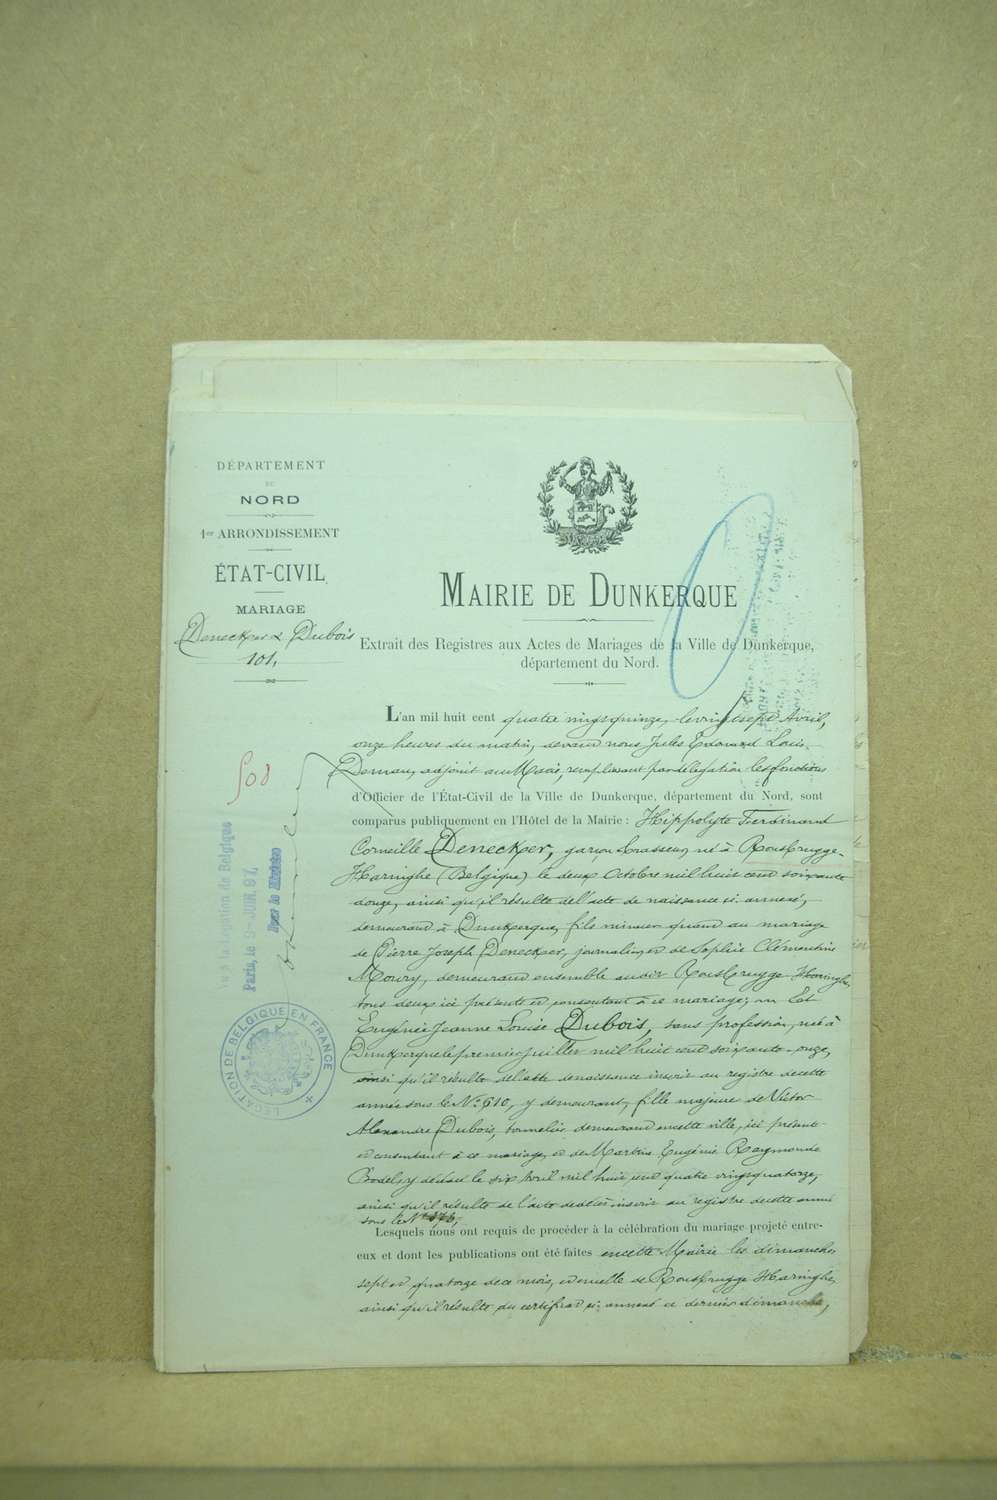 DÉPARTEMENT
DU
NORD
1er ARRONDISSEMENT
ÉTAT-CIVIL
MARIAGE
Deneckper & Dubois
101.
MAIRIE DE DUNKERQUE
Extrait des Registres aux Actes de Mariages de la Ville de Dunkerque,
département du Nord.
L'an mil huit cent quatre vingt quinze, le vingt sept Avril,
onze heures du matin, devant nous Jules Edouard Louis
adjoint au Maire, remplissant par délégation les fonctions
d'Officier de l'État-Civil de la Ville de Dunkerque, département du Nord, sont
comparus publiquement en l'Hôtel de la Mairie : Hippolyte Ferdinand
Corneille Deneckper, garçon brasseur, né à Rousbrugge-
Haringhe (Belgique) le deux Octobre mil huit cent soixante
douze, ainsi qu'il résulte de l'acte de naissance ci-annexé,
demeurant à Dunkerque, fils mineur quant au mariage
de Pierre Joseph Deneckper, journalier, et de Sophie Clémentine
Moury, demeurant ensemble audit Rousbrugge-Haringhe,
tous deux ici présents et consentant à ce mariage; Et
Eugénie Jeanne Louise Dubois, sans profession, née à
Dunkerque le premier juillet mil huit cent soixante-onze,
ainsi qu'il résulte de l'acte de naissance inscrit au registre de cette
année sous le No 610, y demeurant, fille majeure de Victor
Alexandre Dubois, tonnelier demeurant en cette ville, ici présent
et consentant à ce mariage, et de Eugénie Raymonde
décédée le six Avril mil huit cent quatre vingt quatorze,
ainsi qu'il résulte de l'acte de décès inscrit au registre de cette année
sous le No
Lesquels nous ont requis de procéder à la célébration du mariage projeté entre-
eux et dont les publications ont été faites en cette Mairie les dimanches
sept et quatorze de ce mois, et en celle de Rousbrugge Haringhe,
ainsi qu'il résulte du certificat ci-annexé ce dernier dimanche,
500
Vu à la Légation de Belgique
Paris, le 5 JUIN. 97
Pour le Ministre
LÉGATION DE BELGIQUE EN FRANCE